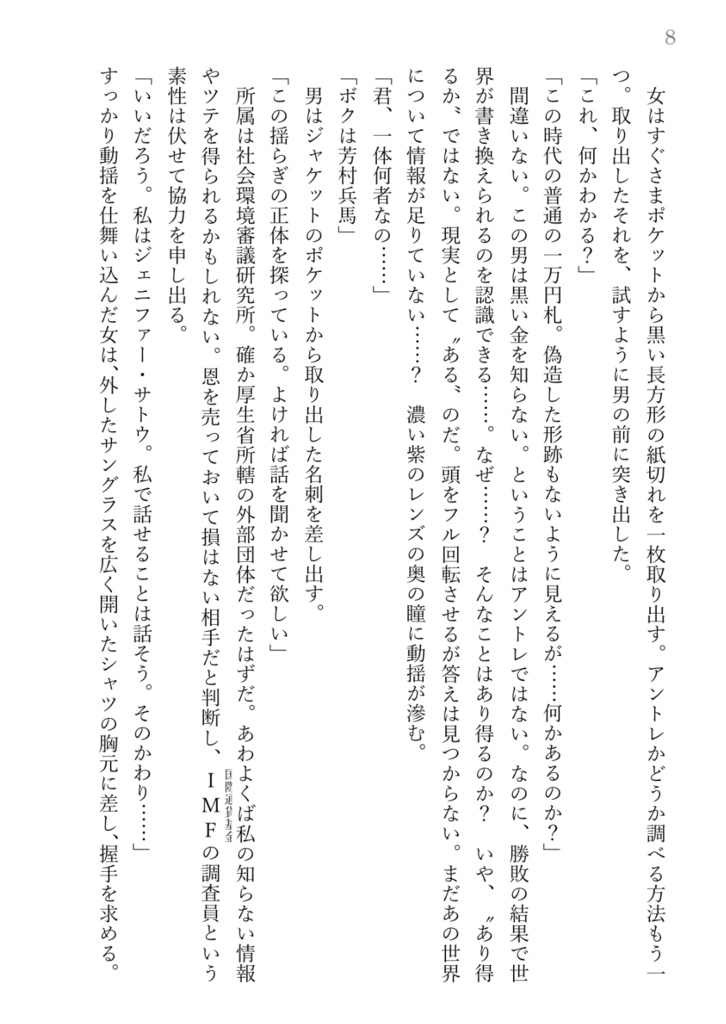 8
女はすぐさまポケットから黒い長方形の紙切れを一枚取り出す。アントレかどうか調べる方法もう一
つ。取り出したそれを、試すように男の前に突き出した。
「これ、何かわかる？」
「この時代の普通の一万円札。偽造した形跡もないように見えるが……何かあるのか？」
間違いない。この男は黒い金を知らない。ということはアントレではない。なのに、勝敗の結果で世
界が書き換えられるのを認識できる……。なぜ……？　そんなことはあり得るのか？　いや、〝あり得
るか〟ではない。現実として〝ある〟のだ。頭をフル回転させるが答えは見つからない。まだあの世界
について情報が足りていない……？　濃い紫のレンズの奥の瞳に動揺が滲む。
「君、一体何者なの……」
「ボクは芳村兵馬」
男はジャケットのポケットから取り出した名刺を差し出す。
「この揺らぎの正体を探っている。よければ話を聞かせて欲しい」
所属は社会環境審議研究所。確か厚生省所轄の外部団体だったはずだ。あわよくば私の知らない情報
やツテを得られるかもしれない。恩を売っておいて損はない相手だと判断し、ＩＭＦの調査員という
国際通貨基金
素性は伏せて協力を申し出る。
「いいだろう。私はジェニファー・サトウ。私で話せることは話そう。そのかわり……」
すっかり動揺を仕舞い込んだ女は、外したサングラスを広く開いたシャツの胸元に差し、握手を求める。